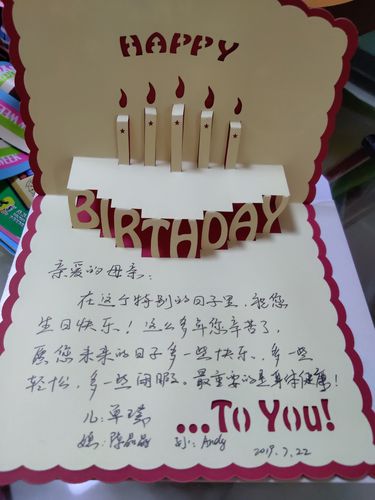 HAPPY
BIRTHDAY
亲爱的母亲:
在这个特别的日子里,祝您
生日快乐!这么多年您辛苦了,
愿您未来的日子多一些快乐、多一些
轻松,多一些闲暇。最重要的是身体健康!
儿:单瑞
...To You!
媳:陈晶晶 孙:Andy
2019.7.22